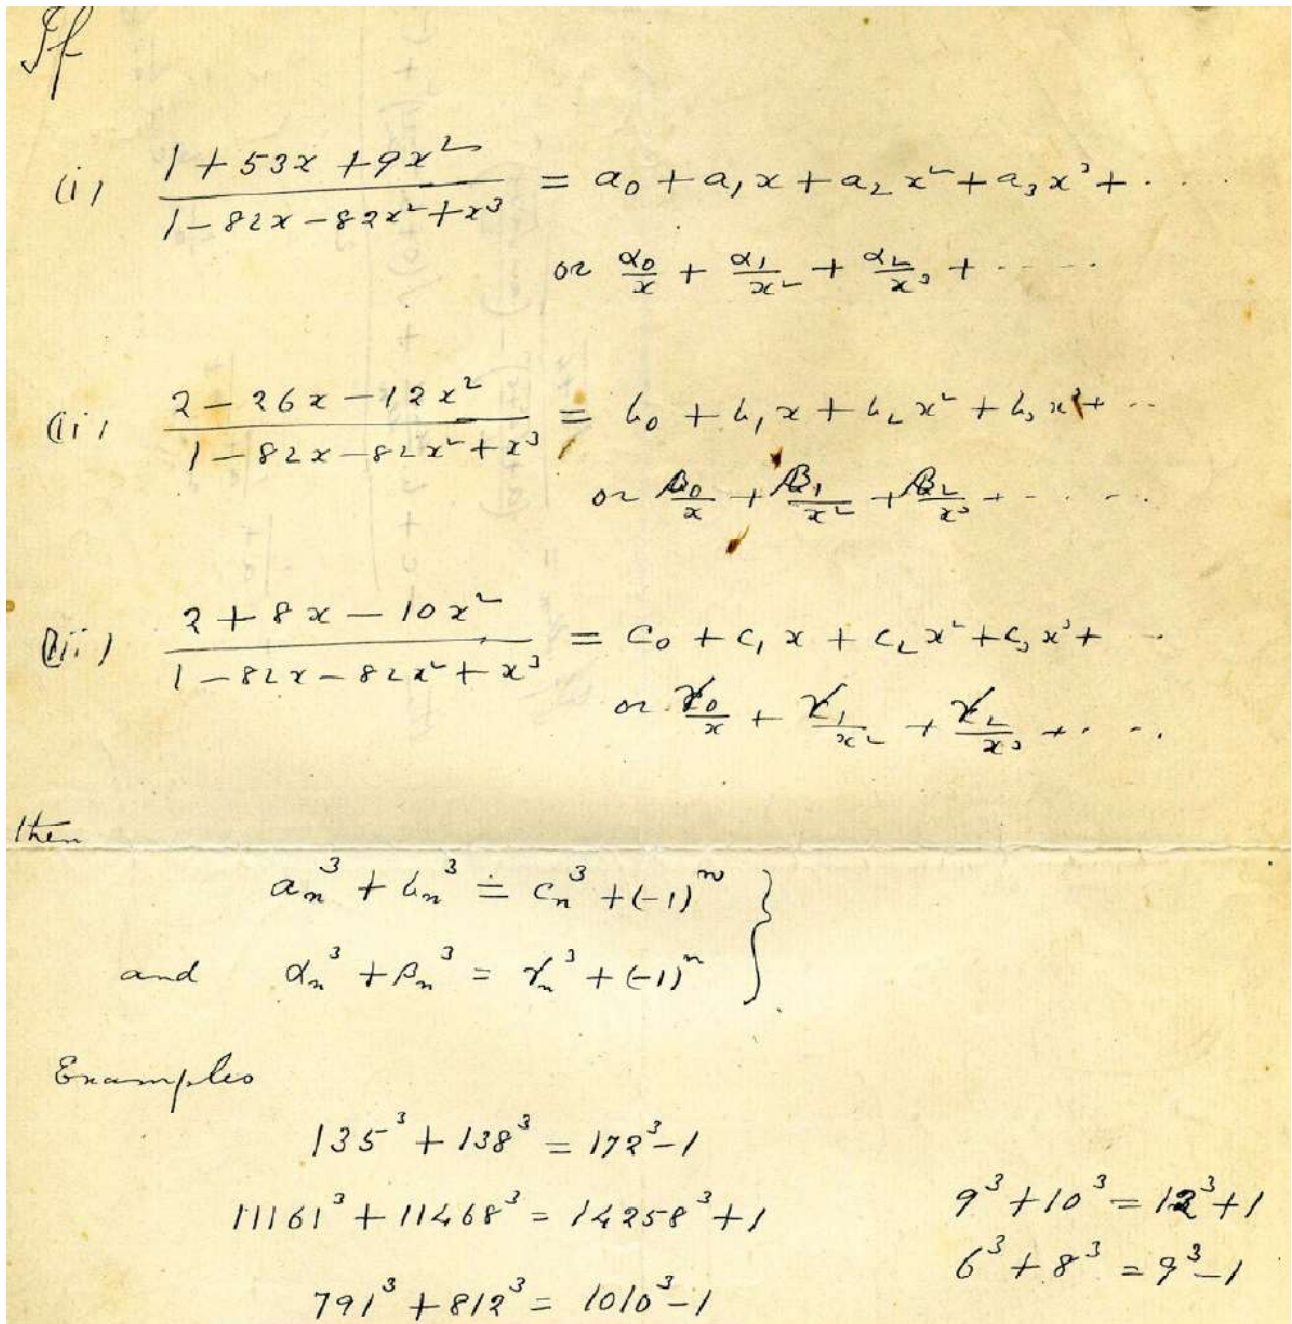 If
(i) (1 + 53x + 9x²)/(1 - 82x - 82x² + x³) = a₀ + a₁x + a₂x² + a₃x³ + ....
or α₀/x + α₁/x² + α₂/x³ + .....
(ii) (2 - 26x - 12x²)/(1 - 82x - 82x² + x³) = b₀ + b₁x + b₂x² + b₃x³ + ...
or β₀/x + β₁/x² + β₂/x³ + .....
(iii) (2 + 8x - 10x²)/(1 - 82x - 82x² + x³) = c₀ + c₁x + c₂x² + c₃x³ + ...
or γ₀/x + γ₁/x² + γ₂/x³ + ....
then
aₙ³ + bₙ³ = cₙ³ + (-1)ⁿ }
and αₙ³ + βₙ³ = γₙ³ + (-1)ⁿ }
Examples
135³ + 138³ = 172³ - 1
11161³ + 11468³ = 14258³ + 1
791³ + 812³ = 1010³ - 1
9³ + 10³ = 12³ + 1
6³ + 8³ = 9³ - 1